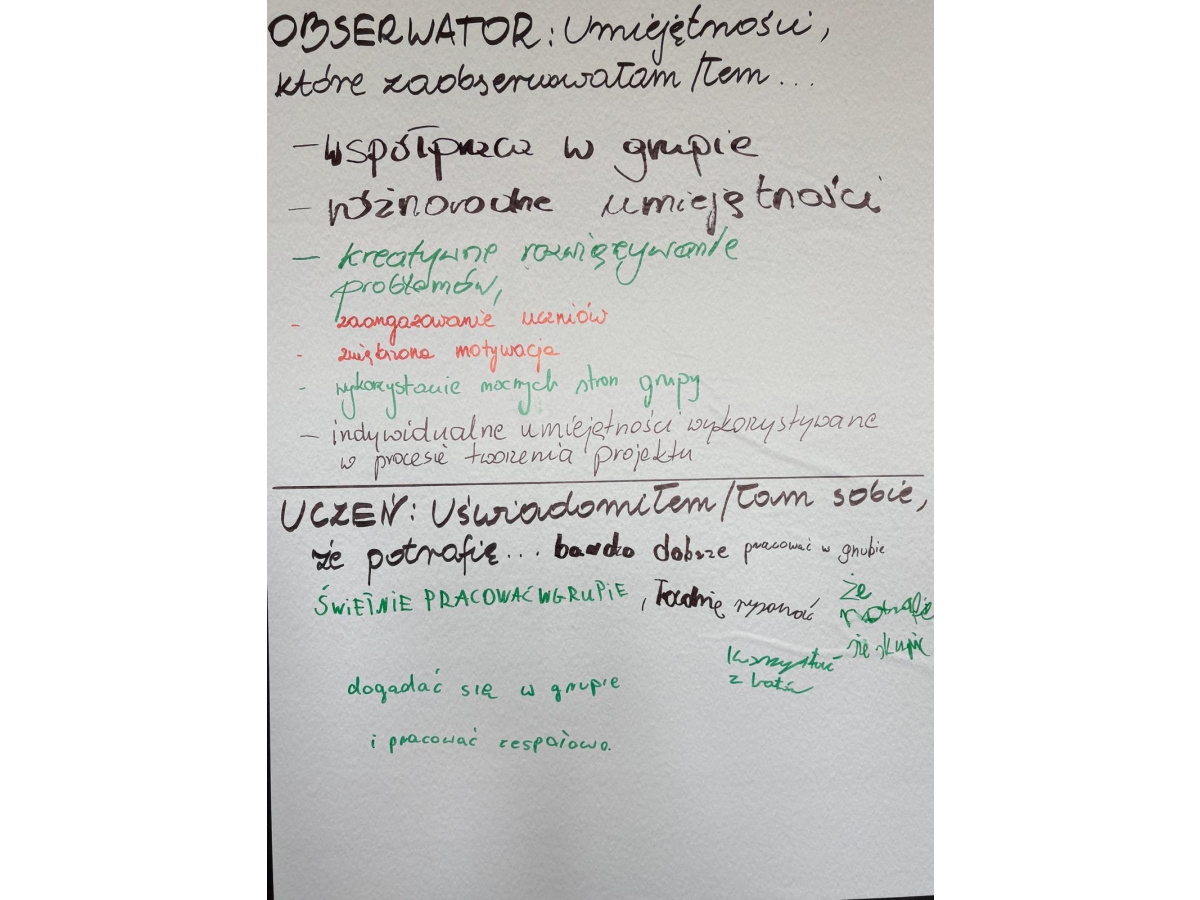 OBSERWATOR: Umiejętności,
które zaobserwowałam/łem...
- współpraca w grupie
- różnorodne umiejętności
- kreatywne rozwięzywanie
problemów,
- zaangażowanie uczniów
- zwiększona motywacja
- wykorzystanie mocnych stron grupy
- indywidualne umiejętności wykorzystywane
w procesie tworzenia projektu
UCZEŃ: Uświadomiłem/łam sobie,
że potrafię... bardo dobrze pracować w grubie
ŚWIETNIE PRACOWAĆ W GRUPIE, ładnie rysować
że
potrafię
się skupić
Korzystać
z
dogadać się w grupie
i pracować zespołowo.